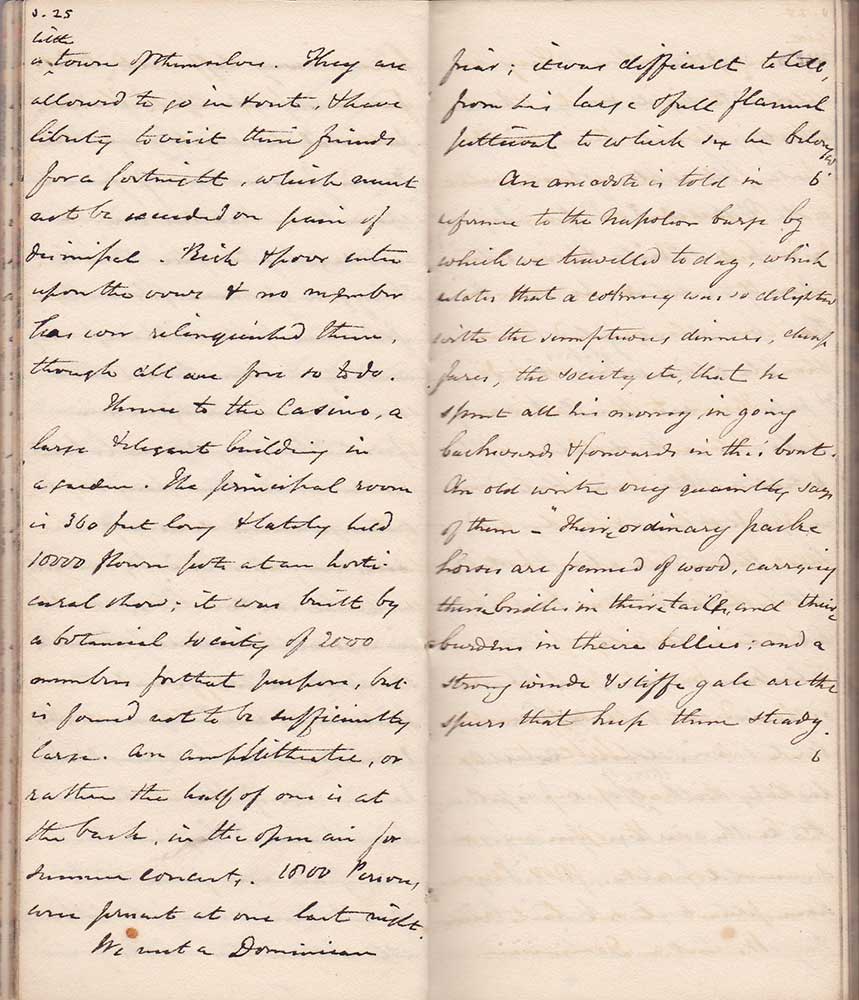 J. 25
little
a town of themselves. They are
allowed to go in & out, & have
liberty to visit their friends
for a fortnight, which must
not be exceeded on pain of
dismissal. Rich & poor enter
upon the vows & no member
has ever relinquished them,
though all are free so to do.
Thence to the Casino, a
large & elegant building in
a garden. The principal room
is 360 feet long & lately held
10000 flower pots at an horti-
cural show; it was built by
a botanical society of 2000
members for that purpose, but
is found not to be sufficiently
large. An amphitheatre, or
rather the half of one is at
the back, in the open air for
summer concerts. 1800 Persons
were present at one last night.
We met a Dominican
friar; it was difficult to tell,
from his large & full flannel
petticoat to which sex he belonged
6
An anecdote is told in
reference to the Napoleon barge by
which we travelled to day, which
relates that a was so delighted
with the sumptuous dinners, cheap
fares, the society etc, that he
spent all his money in going
backwards & forwards in this boat.
An old writer very quaintly says
of them - "Their ordinary packe
horses are framed of wood, carrying
their bridles in their tails, and their
burdens in theire bellies; and a
strong winde & stiffe gale are the
spurs that keep them steady.
6